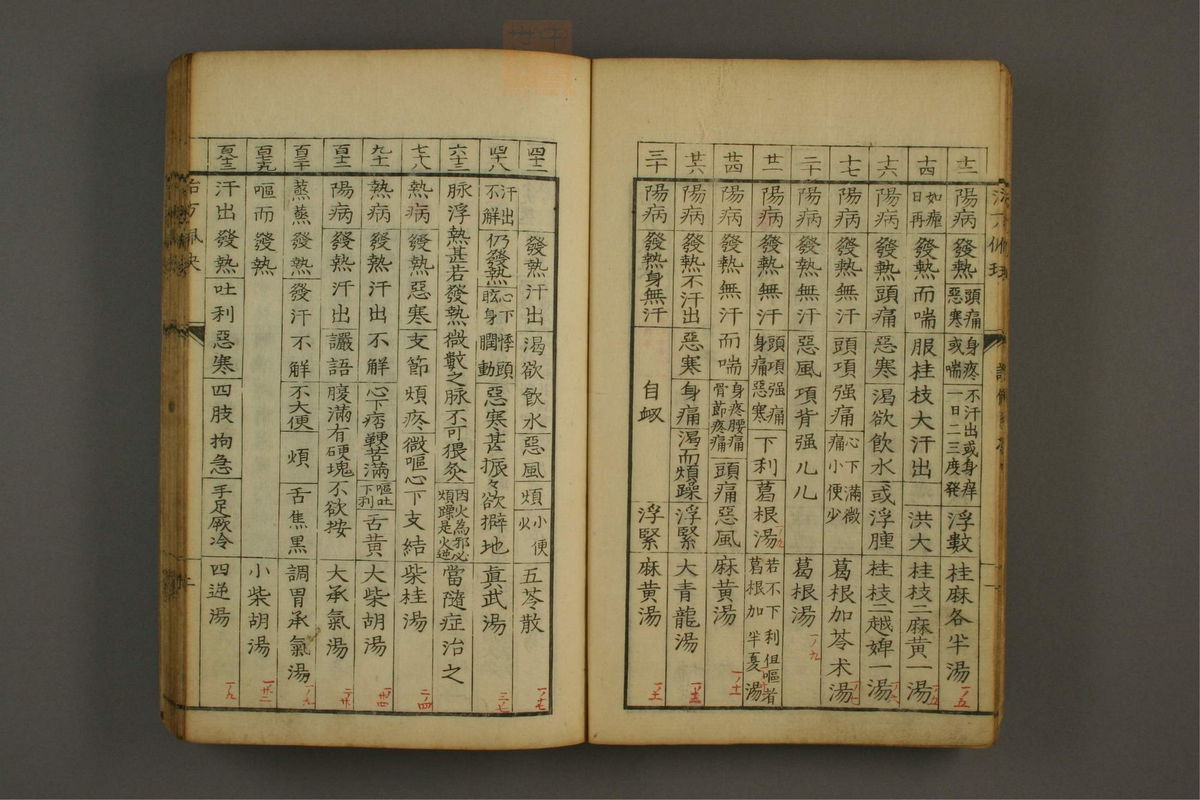 十二 陽病 發熱 頭痛惡寒 身疼或喘 不汗出或身痒一日二三度発 浮數 桂麻各半湯
十四 如瘧日再 發熱而喘 服桂枝大汗出 洪大 桂枝二麻黄一湯
十六 陽病 發熱頭痛 惡寒 渴欲飲水或浮腫 桂枝二越婢一湯
十七 陽病 發熱無汗 頭項强痛 心下滿微痛小便少 葛根加苓术湯
二十 陽病 發熱無汗 惡風項背强儿儿 葛根湯
廿一 陽病 發熱無汗 頭項强痛身痛惡寒 下利 葛根湯 若不下利但嘔者葛根加半夏湯
廿四 陽病 發熱無汗 而喘 身疼腰痛骨節疼痛 頭痛惡風 麻黄湯
廿六 陽病 發熱不汗出 惡寒 身痛 渴而煩躁 浮緊 大青龍湯
三十 陽病 發熱身無汗 自衂 浮緊 麻黄湯
四十一 發熱汗出 渴欲飲水 惡風 煩 小便火 五苓散
四十八 汗出不解 仍發熱 心下悸頭眩身瞤動 惡寒甚振々欲擗地 眞武湯
六十三 脉浮熱甚若發熱微數之脉不可猥灸 因火為邪必煩躁是火逆 當隨症治之
七十八 熱病 發熱惡寒 支節煩疼微嘔心下支結 柴桂湯
九十一 熱病 發熱汗出不解 心下痞鞕苦滿 嘔吐下利 舌黄 大柴胡湯
百十二 陽病 發熱汗出 讝語 腹滿有硬塊不欲按 大承氣湯
百三十 蒸蒸發熱 發汗不解 不大便 煩 舌焦黒 調胃承氣湯
百七十九 嘔而發熱 小柴胡湯
汗出發熱 吐利惡寒 四肢拘急 手足厥冷 四逆湯